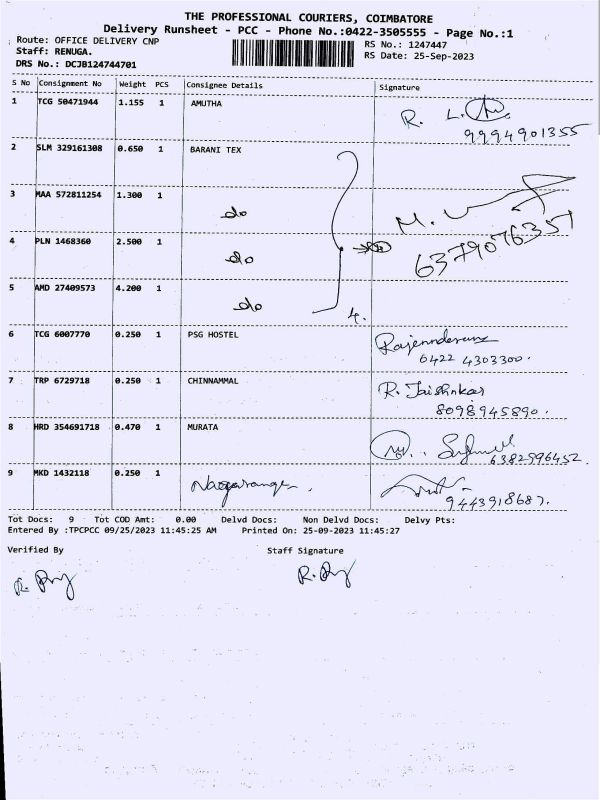 THE PROFESSIONAL COURIERS, COIMBATORE
Delivery Runsheet - PCC - Phone No.:0422-3505555 - Page No.:1
Route: OFFICE DELIVERY CNP
RS No.: 1247447
Staff: RENUGA.
RS Date: 25-Sep-2023
DRS No.: DCJB124744701
S No Consignment No Weight PCS Consignee Details Signature
1 TCG 50471944 1.155 1 AMUTHA R. L.
9994901355
2 SLM 329161308 0.650 1 BARANI TEX
3 MAA 572811254 1.300 1 do M.
4 PLN 1468360 2.500 1 do 6379076351
5 AMD 27409573 4.200 1 do 4.
6 TCG 6007770 0.250 1 PSG HOSTEL
0422 4303300.
7 TRP 6729718 0.250 1 CHINNAMMAL R. Jaishnkar
8098945890.
8 HRD 354691718 0.470 1 MURATA
6382996452
9 MKD 1432118 0.250 1
9443918687.
Tot Docs: 9 Tot COD Amt: 0.00 Delvd Docs: Non Delvd Docs: Delvy Pts:
Entered By :TPCPCC 09/25/2023 11:45:25 AM Printed On: 25-09-2023 11:45:27
Verified By Staff Signature